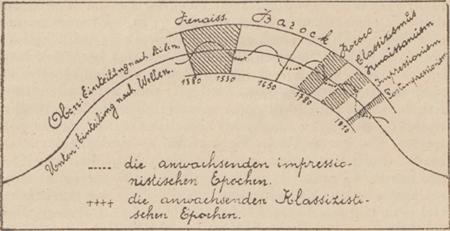 Renaiss. Barock Rococo
Classizismus
Renaissanism
Impressionism
Postimpressionism
Oben: Einteilung nach Stilen.
Unten: Einteilung nach Wellen.
1380 1530 1650 1780 1910
..... die anwachsenden impressio-
nistischen Epochen.
++++ die anwachsenden Klassizisti-
schen Epochen.